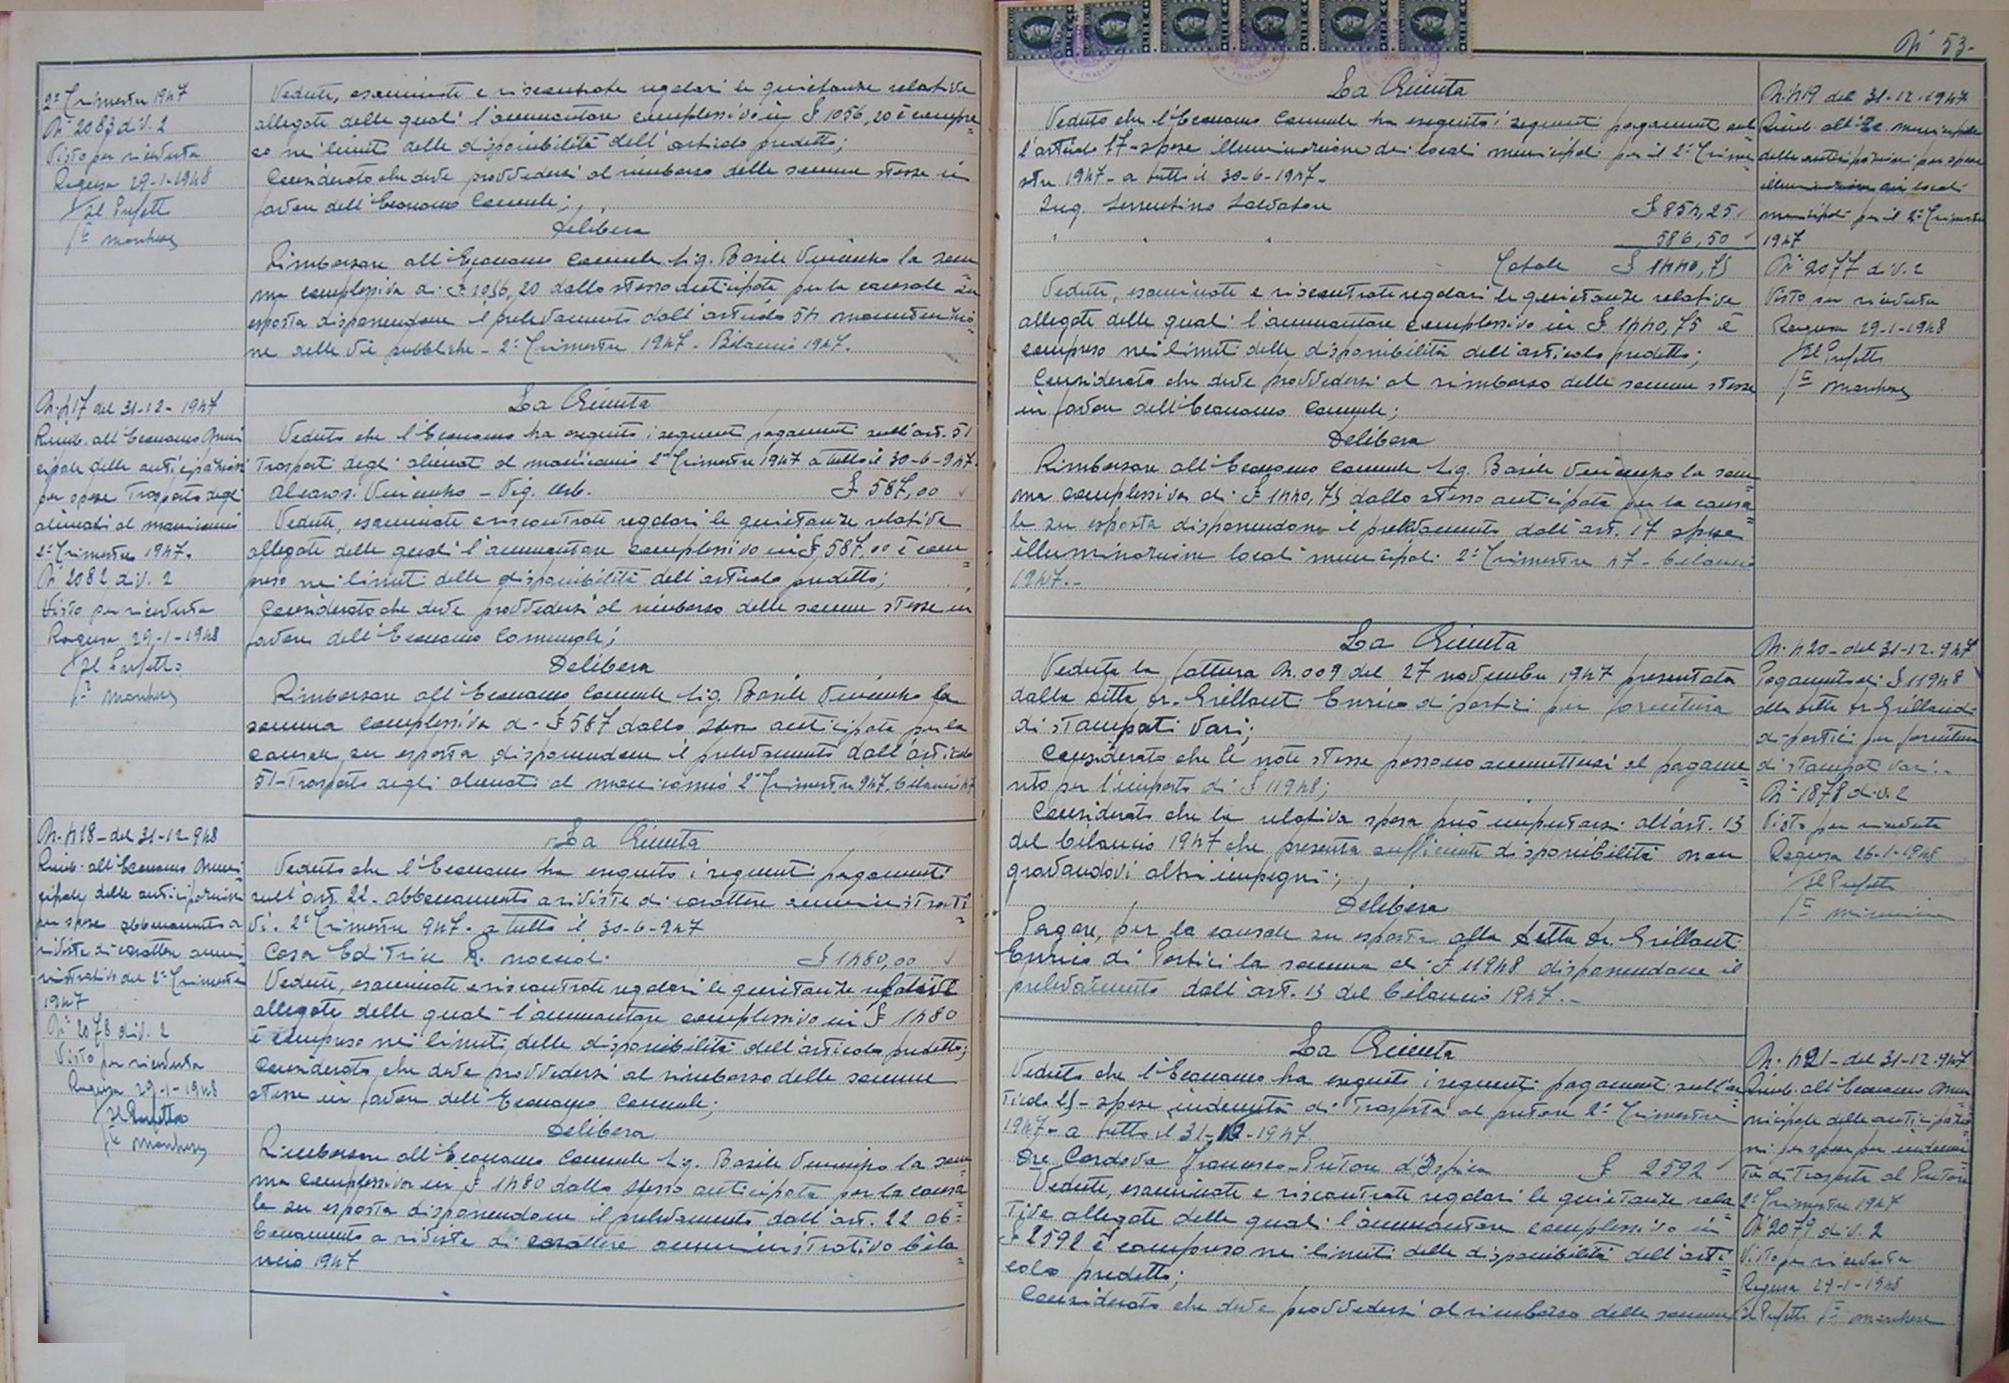 2° Trimestre 1947
N° 2083 div. 2
Visto per ricevuta
Ragusa 29-1-1948
Il Prefetto
Fto Marchese
Vedute, esaminate e riscontrate regolari le quietanze relative
allegate delle quali l'ammontare complessivo in £ 1056,20 è compre=
so nei limiti delle disponibilità dell'articolo predetto;
Considerato che deve provvedersi al rimborso delle somme stesse in
favore dell'Economo Comunale;
Delibera
Rimborsare all'Economo Comunale Sig. Basile Vincenzo la som=
ma complessiva di £ 1056,20 dallo stesso anticipata per la causale su
esposta disponendone il prelevamento dall'articolo 54 manutenzio=
ne delle vie pubbliche - 2° Trimestre 1947 - Bilancio 1947.
N. 417 del 31-12-1947
Rimb. all'Economo Muni
cipale delle anticipazioni
per spese Trasporto degli
alienati al manicomio
2° Trimestre 1947.
N° 2082 div. 2
Visto per ricevuta
Ragusa 29-1-1948
Il Prefetto
Fto Marchese
La Giunta
Veduto che l'Economo ha eseguito i seguenti pagamenti sull'art. 51
Trasporti degli alienati al manicomio 2° Trimestre 1947 a tutto il 30-6-947.
Vincenzo - Vig. Urb. £ 587,00
Vedute, esaminate e riscontrate regolari le quietanze relative
allegate delle quali l'ammontare complessivo in £ 587,00 è com=
preso nei limiti delle disponibilità dell'articolo predetto;
Considerato che deve provvedersi al rimborso delle somme stesse in
favore dell'Economo Comunale;
Delibera
Rimborsare all'Economo Comunale Sig. Basile Vincenzo la
somma complessiva di £ 587 dallo stesso anticipata per la
causale su esposta disponendone il prelevamento dall'articolo
51-Trasporto degli alienati al manicomio 2° Trimestre 947. bilancio 47
N. 418 - del 31-12-948
Rimb. all'Economo Muni
cipale delle anticipazioni
per spese abbonamento a
riviste di carattere ammi
nistrativo del 2° Trimestre
1947
N° 2078 div. 2
Visto per ricevuta
Ragusa 29-1-1948
Il Prefetto
Fto Marchese
La Giunta
Veduto che l'Economo ha eseguito i seguenti pagamenti
sull'art. 22 - abbonamento a riviste di carattere amministrati=
vi. 2° Trimestre 947. a tutto il 30-6-947
Casa Editrice R. £ 1480,00
Vedute, esaminate e riscontrate regolari le quietanze relative
allegate delle quali l'ammontare complessivo in £ 1480
è compreso nei limiti delle disponibilità dell'articolo predetto;
Considerato che deve provvedersi al rimborso delle somme
stesse in favore dell'Economo Comunale;
Delibera
Rimborsare all'Economo Comunale Sig. Basile Vincenzo la som=
ma complessiva in £ 1480 dallo stesso anticipata per la causa=
le su esposta disponendone il prelevamento dall'art. 22 ab=
bonamento a riviste di carattere amministrativo bila=
ncio 1947
N° 53-
La Giunta
Veduto che l'Economo Comunale ha eseguito i seguenti pagamenti sul
l'articolo 17 - spese illuminazione dei locali municipali per il 2° Trime=
stre 1947 - a tutto il 30-6-1947 -
Ing. Serrentino Salvatore £ 854,25
" " " 586,50
Totale £ 1440,75
Vedute, esaminate e riscontrate regolari le quietanze relative
allegate delle quali l'ammontare complessivo in £ 1440,75 è
compreso nei limiti delle disponibilità dell'articolo predetto;
Considerato che deve provvedersi al rimborso delle somme stesse
in favore dell'Economo Comunale;
Delibera
Rimborsare all'Economo Comunale Sig. Basile Vincenzo la som=
ma complessiva di £ 1440,75 dallo stesso anticipata per la causa=
le su esposta disponendone il prelevamento dall'art. 17 spese
illuminazione locali municipali 2° Trimestre 47 - bilancio
1947.-
N. 419 del 31-12-1947
Rimb. all'Ec. municipale
delle anticipazioni per spese
illuminazione dei locali
municipali per il 2° Trimestre
1947
N° 2077 div. 2
Visto per ricevuta
Ragusa 29-1-1948
Il Prefetto
Fto Marchese
La Giunta
Veduta la fattura N. 009 del 27 novembre 1947 presentata
dalla Ditta Dr. Grillanti Enrico di Portici per fornitura
di stampati vari;
Considerato che le note stesse possono ammettersi al pagame=
nto per l'importo di £ 11948;
Considerato che la relativa spesa può imputarsi all'art. 13
del bilancio 1947 che presenta sufficiente disponibilità non
gravandovi altri impegni;
Delibera
Pagare, per la causale su esposta alla Ditta Dr. Grillanti
Enrico di Portici la somma di £ 11948 disponendone il
prelevamento dall'art. 13 del bilancio 1947.-
N. 420 - del 31-12-947
Pagamento di £ 11948
alla Ditta Dr. Grillandi
di Portici per fornitura
di stampati vari.-
N° 1878 div. 2
Visto per ricevuta
Ragusa 26-1-1948
Il Prefetto
La Giunta
Veduto che l'Economo ha eseguito i seguenti pagamenti sull'ar
ticolo 25 - spese indennità di trasporta al pretore 2° Trimestre
1947 - a tutto il 31-12-1947
Dre Cordova Francesco - Pretore d'Ispica £ 2592
Vedute, esaminate e riscontrate regolari le quietanze rela
tive allegate delle quali l'ammontare complessivo in
£ 2592 è compreso nei limiti delle disponibilità dell'arti=
colo predetto;
Considerato che deve provvedersi al rimborso delle somme
N. 421 - del 31-12-947
Rimb. all'Economo Mu
nicipale delle anticipazio
ni per spese per indenni
tà di trasporto al Pretore
2° Trimestre 1947
N° 2079 div. 2
Visto per ricevuta
Ragusa 29-1-1948
Il Prefetto Fto Marchese